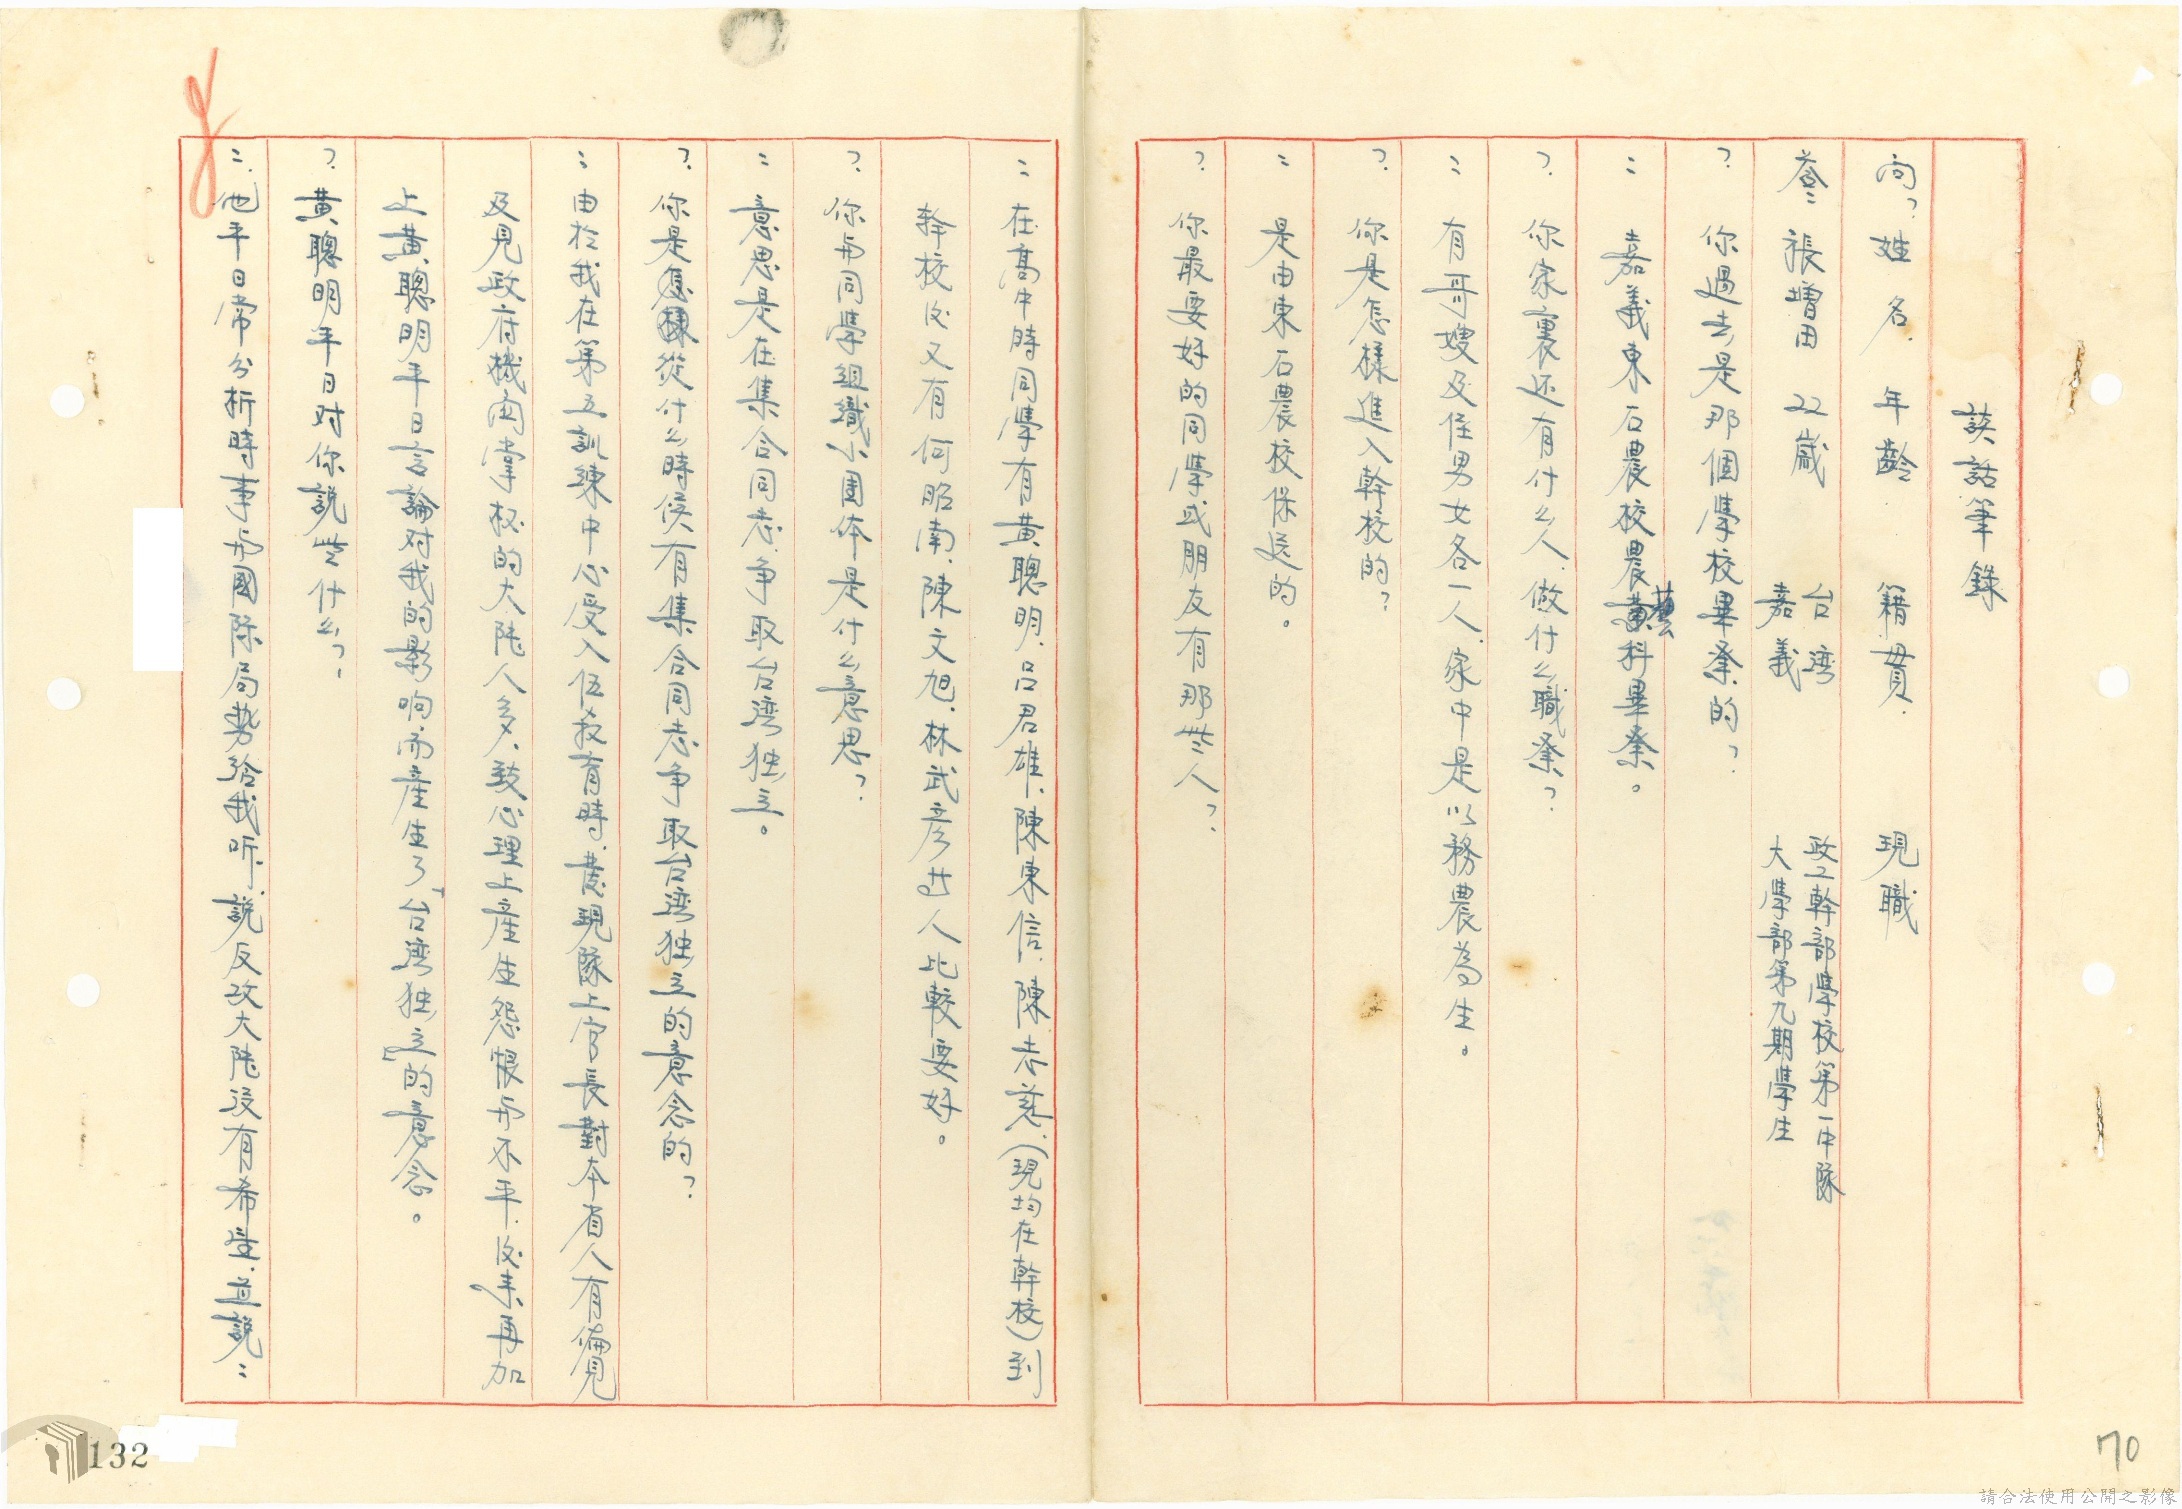 談話筆錄
问？姓名．年齡．籍貫．現職
答：張增田 22歲 台湾嘉義 政工幹部學校第一中隊大學部第九期學生
？．你過去是那個學校畢業的？
：嘉義東石農校農藝科畢業。
？．你家裏还有什么人．做什么職業？
：有哥嫂及侄男女各一人．家中是以務農為生。
？．你是怎樣進入幹校的？
：是由東石農校保送的。
？你最要好的同學或朋友有那些人？
：在高中時同學有黃聰明．呂君雄．陳東信．陳志苑．（現均在幹校）到
幹校後又有何昭南．陳文旭．林武彥廿人比較要好。
？．你与同學組織小团体是什么意思？
：意思是在集合同志．争取台湾独立。
？．你是從什么時侯有集合同志争取台湾独立的意念的？
：由於我在第五訓練中心受入伍教育時．發現隊上官長對本省人有偏見
及見政府機関掌权的大陆人多．致心理上產生怨恨与不平．後来再加
上黃聰明平日言論对我的影响．而產生了「台湾独立」的意念。
？黃聰明平日对你説些什么？
：他平日常分析時事与國际局势给我听．説反攻大陆没有希望．並説：
70
132
請合法使用公開之影像